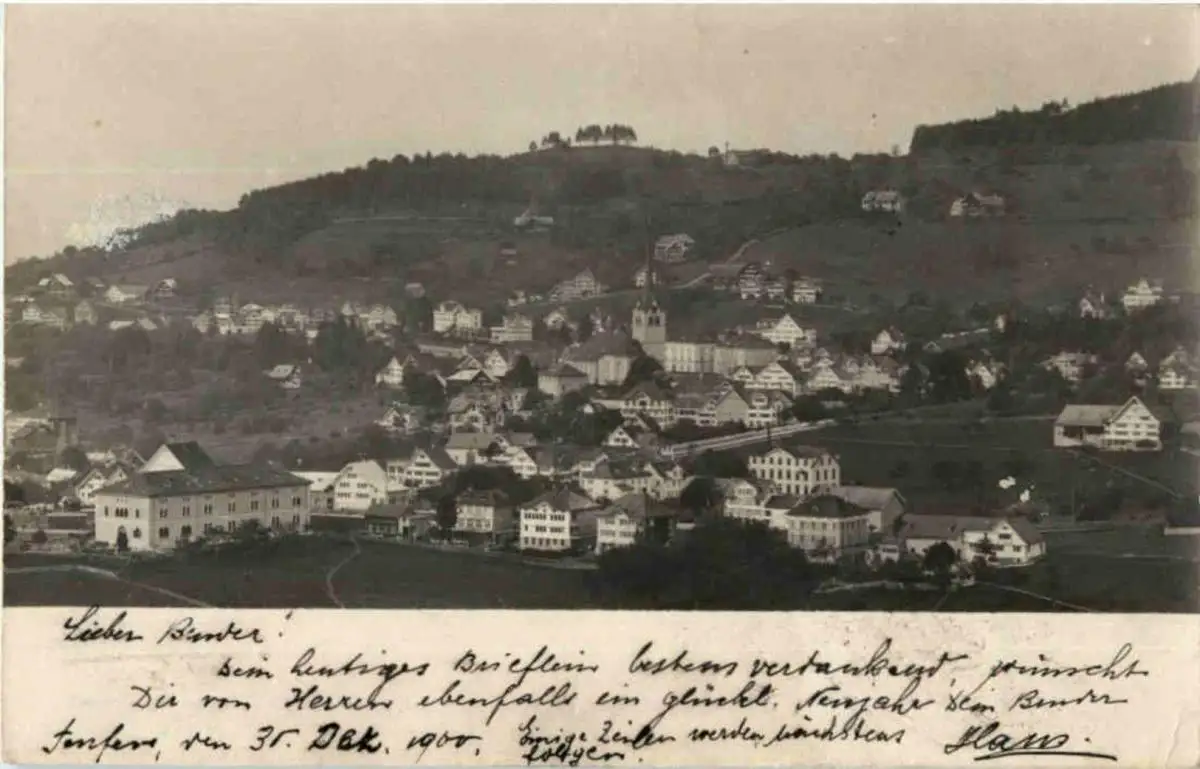 Lieber Bruder!
Dein heutiges Brieflein bestens verdankend, wünscht
Dir von Herzen ebenfalls ein glückl. Neujahr Dein Bruder
den 31. Dez. 1900. Einige Zeilen werden nächstens Hans.
folgen.